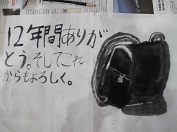 12年間ありが
とう。そしてこれ
からもよろしく。